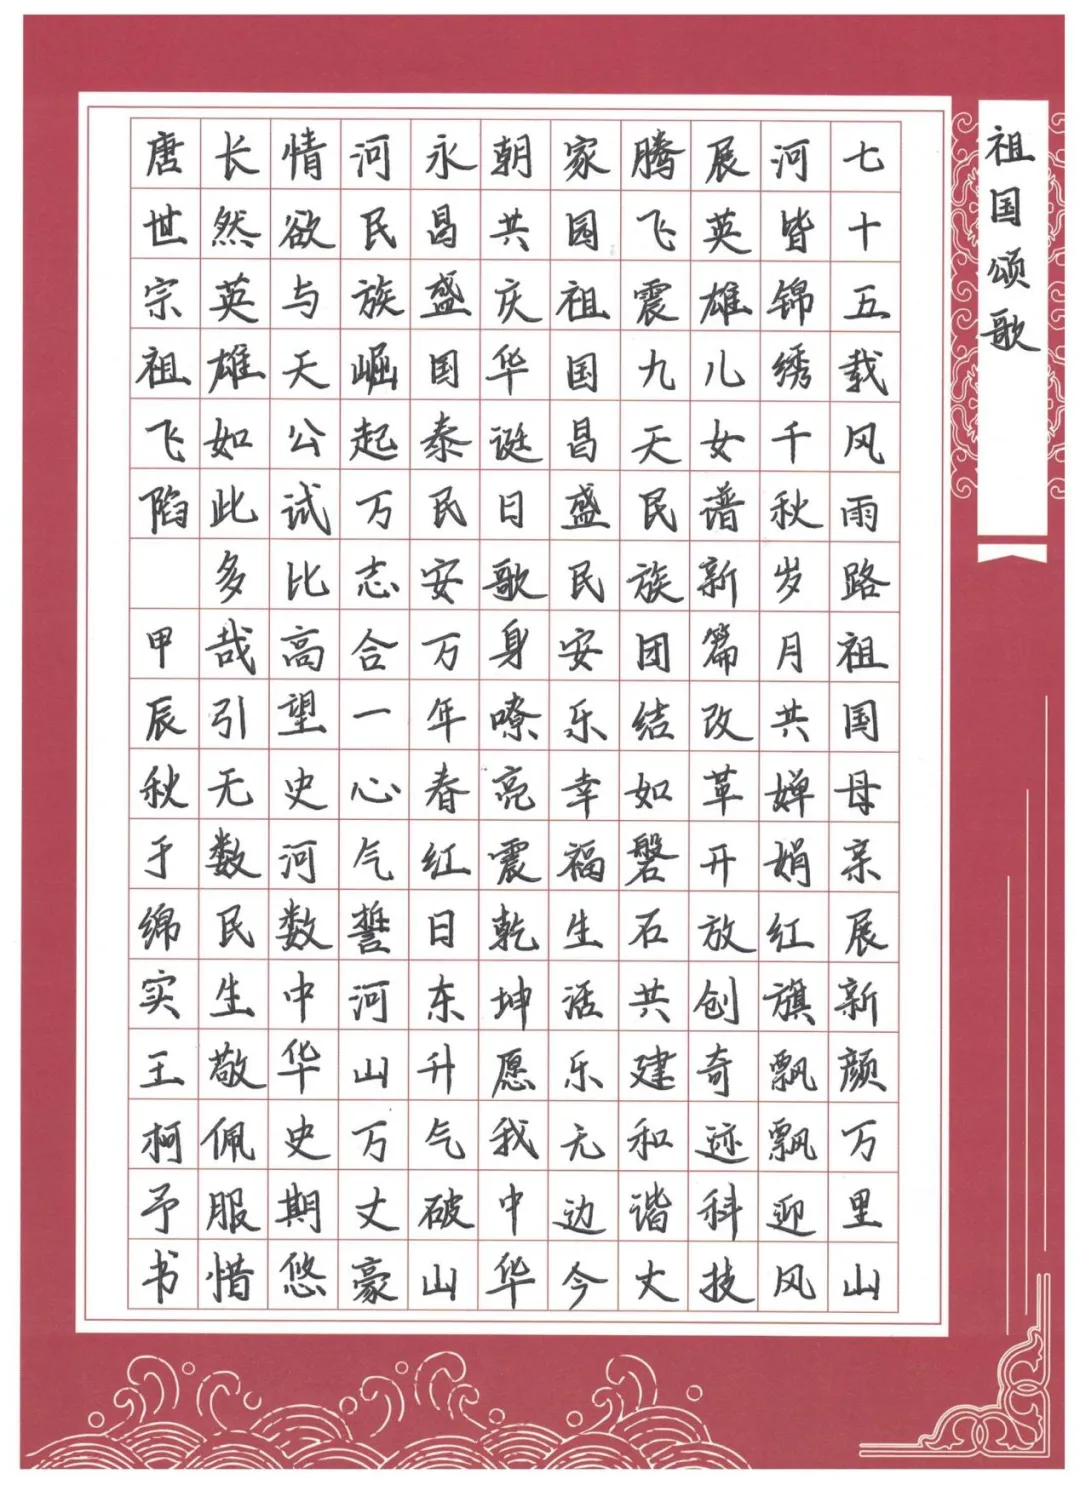 祖国颂歌
七十五载风雨路祖国母亲展新颜万里山
河皆锦绣千秋岁月共婵娟红旗飘飘迎风
展英雄儿女谱新篇改革开放创奇迹科技
腾飞震九天民族团结如磐石共建和谐大
家园祖国昌盛民安乐幸福生活乐无边今
朝共庆华诞日歌身嘹亮震乾坤愿我中华
永昌盛国泰民安万年春红日东升气破山
河民族崛起万志合一心气誓河山万丈豪
情欲与天公试比高望史河数中华史期悠
长然英雄如此多哉引无数民生敬佩服惜
唐世宗祖飞陷 甲辰秋于绵实王柯予书